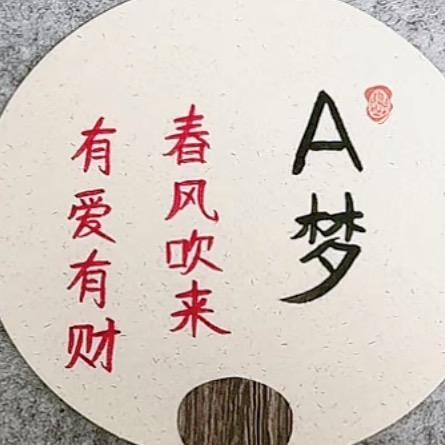 A梦
春风吹来
有爱有财